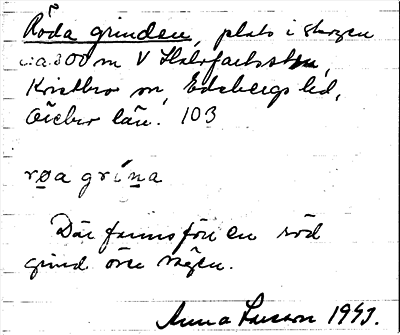 Röda grinden, plats i skogen
c:a 300 m V
Kvistbro sn, Edsbergs hd,
Örebro län. 103
røa grína
Där fanns förr en röd
grind över vägen.
Anna Larsson 1947.